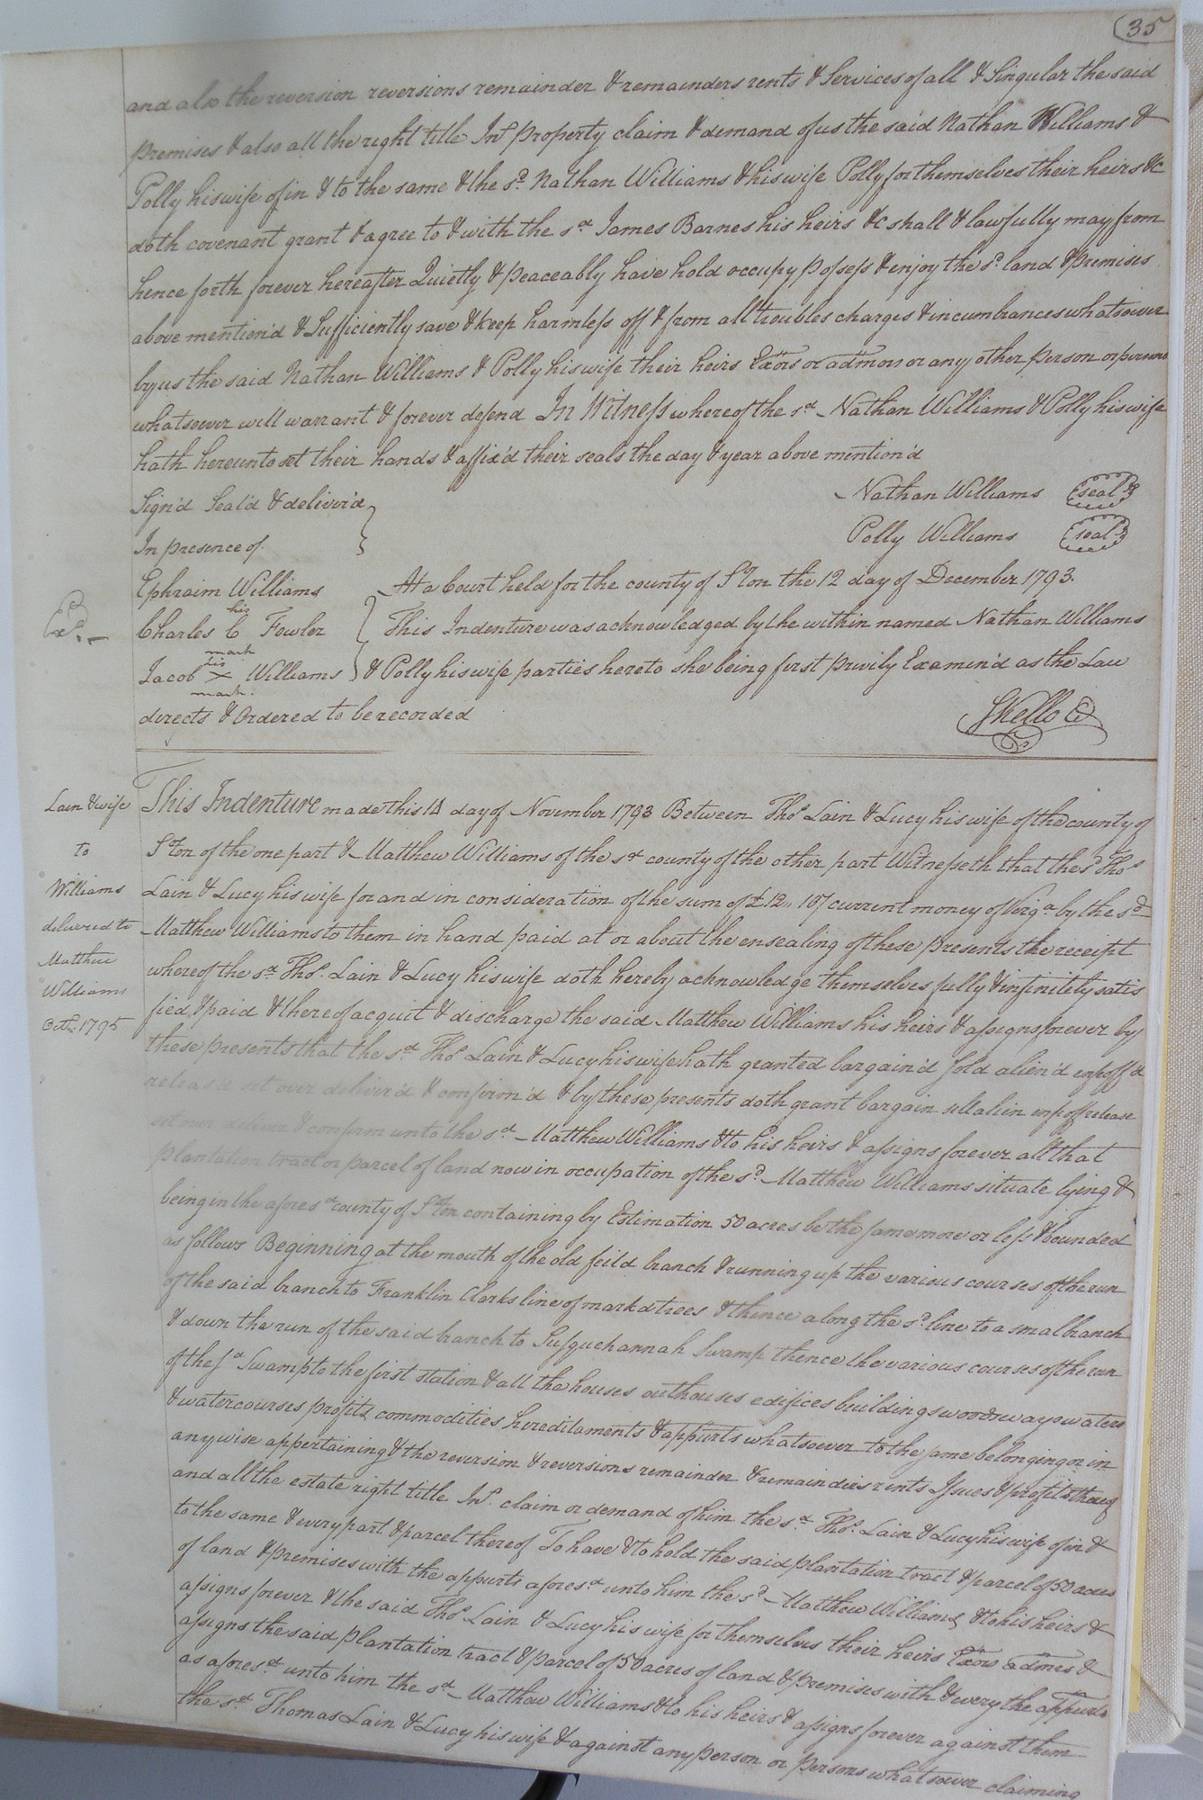 35
and also the reversion reversions remainder & remainders rents & Services of all & Singular the said
premises & also all the right title Int. property claim & demand of us the said Nathan Williams &
Polly his wife of in & to the same & the sd. Nathan Williams & his wife Polly for themselves their heirs &c
doth covenant grant & agree to & with the sd James Barnes his heirs &c shall & lawfully may from
hence forth forever hereafter Quietly & peaceably have hold occupy possess & enjoy the sd. land & premises
above mention'd & Sufficiently save & keep harmless off & from all troubles charges & incumbrances whatsoever
by us the said Nathan Williams & Polly his wife their heirs Exors or admons or any other person or persons
whatsoever will warrant & forever defend In Witness whereof the sd Nathan Williams & Polly his wife
hath hereunto set their hands & affix'd their seals the day & year above mention'd
Sign'd Seal'd & deliver'd
In presence of
Nathan Williams seal
Polly Williams seal
Ephraim Williams
his
Charles C Fowler
mark
his
Jacob X Williams
mark.
Ex. –
At a Court held for the county of Ston on the 12 day of December 1793.
This Indenture was acknowledged by the within named Nathan Williams
& Polly his wife parties hereto she being first privily Examin'd as the Law
directs & Ordered to be recorded
SKello C
Lain & wife
to
Williams
delivered to
Matthew
Williams
Octr. 1795
This Indenture made this 14 day of November 1793 Between Thos. Lain & Lucy his wife of the county of
Ston of the one part & Matthew Williams of the sd county of the other part Witnesseth that the sd. Thos.
Lain & Lucy his wife for and in consideration of the sum of £12,, 10/ current money of Virga by the sd
Matthew Williams to them in hand paid at or about the ensealing of these presents the receipt
whereof the sd. Thos. Lain & Lucy his wife doth hereby acknowledge themselves fully & infinitely satis
fied & paid & thereof acquit & discharge the said Matthew Williams his heirs & assigns forever by
these presents that the sd Thos. Lain & Lucy his wife hath granted bargain'd sold alien'd enfoff'd
release set over deliver'd & confirm'd & by these presents doth grant bargain sell alien enfoff release
set over deliver & confirm unto the sd Matthew Williams & to his heirs & assigns forever all that
plantation tract or parcel of land now in occupation of the sd. Matthew Williams situate lying &
being in the aforesd county of Ston containing by Estimation 50 acres be the same more or less & bounded
as follows Beginning at the mouth of the old feild branch & running up the various courses of the run
of the said branch to Franklin Clarks line of markd trees & thence along the sd. line to a small branch
& down the run of the said branch to Susquehannah Swamp thence the various courses of the run
of the sd Swamp to the first station & all the houses outhouses edifices buildings woods ways waters
& watercourses profits commodities hereditaments & appurts whatsoever to the same belonging or in
any wise appertaining & the reversion & reversions remainder & remainders rents Issues & profits thereof
and all the estate right title Int. claim or demand of him the sd. Thos. Lain & Lucy his wife of in &
to the same & every part & parcel thereof To have & to hold the said plantation tract & parcel of 50 acres
of land & premises with the appurts aforesd unto him the sd. Matthew Williams & to his heirs &
assigns forever & the said Thos. Lain & Lucy his wife for themselves their heirs Exors admrs &
assigns the said plantation tract & parcel of 50 acres of land & premises with & every the appurts
as aforesd. unto him the sd Matthew Williams & to his heirs & assigns forever against them
the sd Thomas Lain & Lucy his wife & against any person or persons whatsoever claiming